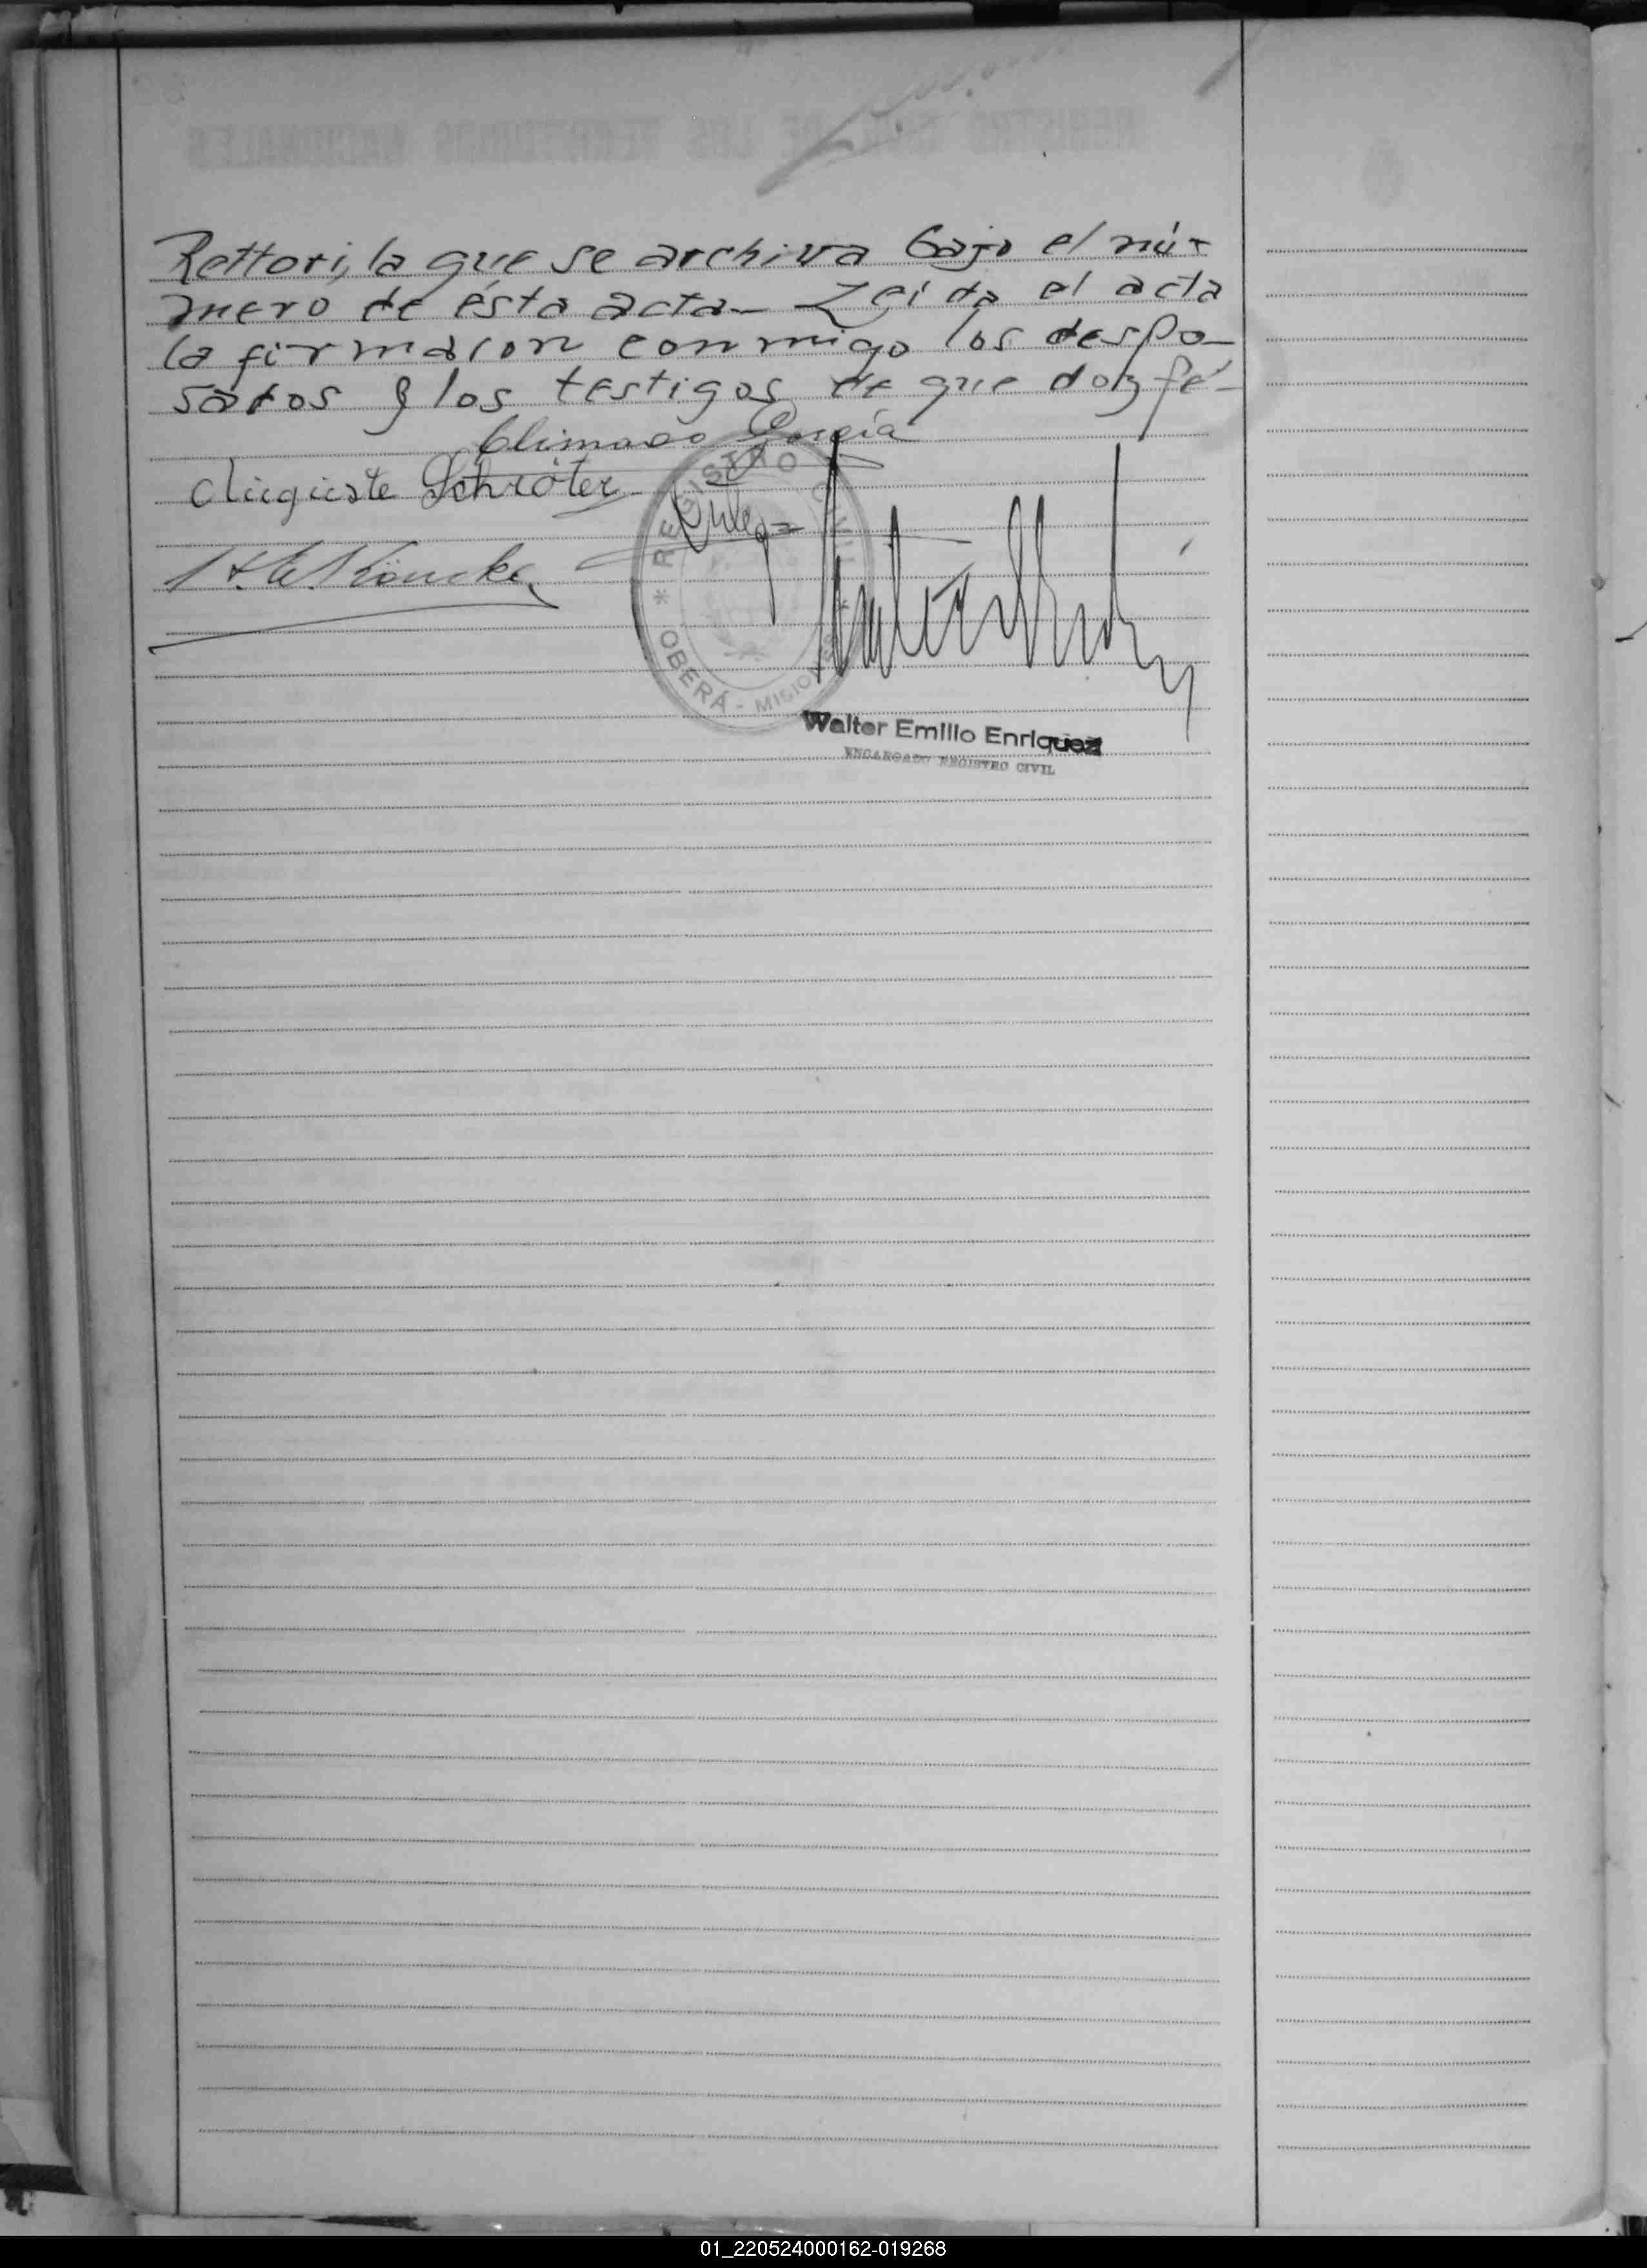 Rettori, la que se archiva bajo el nú-
mero de ésta acta - Leida el acta
la firmaron conmigo los despo-
sados y los testigos de que doy fé-
Climaco García
Auguste Schröter
REGISTRO CIVIL
* OBERÁ - MISIONES *
Walter Emilio Enriquez
ENCARGADO REGISTRO CIVIL
01_220524000162-019268